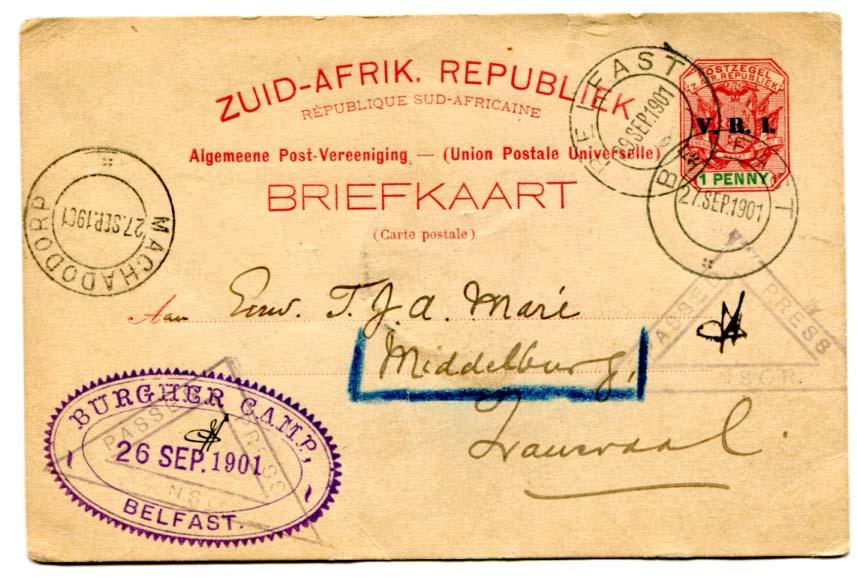 ZUID-AFRIK. REPUBLIEK
RÉPUBLIQUE SUD-AFRICAINE
Algemeene Post-Vereeniging — (Union Postale Universelle)
BRIEFKAART
(Carte postale)
POSTZEGEL
Z. AFR. REPUBLIEK
V. R. I.
1 PENNY
BELFAST
SEP.1901
BELFAST
27.SEP.1901
MACHADODORP
27.SEP.1901
Aan T. J. A. Maré
Middelburg,
Transvaal.
PASSED PRESS
CENSOR.
BURGHER CAMP,
26 SEP. 1901
BELFAST.
PASSED PRESS
CENSOR